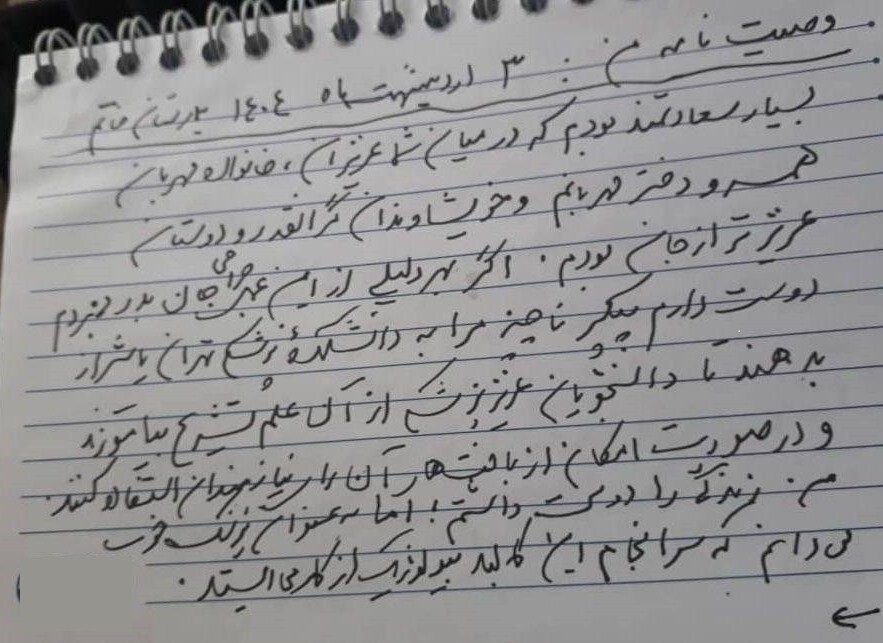 وصیت نامه من : ۳ اردیبهشت ماه ۱٤۰٤ بیمارستان خاتم
بسیار سعادتمند بودم که در میان شما عزیزان، خانواده مهربان
همسر و دختر مهربانم و خویشاوندان گرانقدر و دوستان
عزیزتر از جان بودم. اگر بهر دلیلی از این عمل جراحی جان بدر نبردم
دوست دارم پیکر ناچیز مرا به دانشکدهٔ پزشکی تهران یا شیراز
بدهند تا دانشجویان عزیز پزشکی از آن علم تشریح بیاموزند
و در صورت امکان از بافت‌های آن برای نیازمندان استفاده کنند.
من زندگی را دوست داشتم؛ اما به عنوان پزشک خوب
می دانم که سرانجام این کالبد بیولوژیک از کار می ایستد.
←